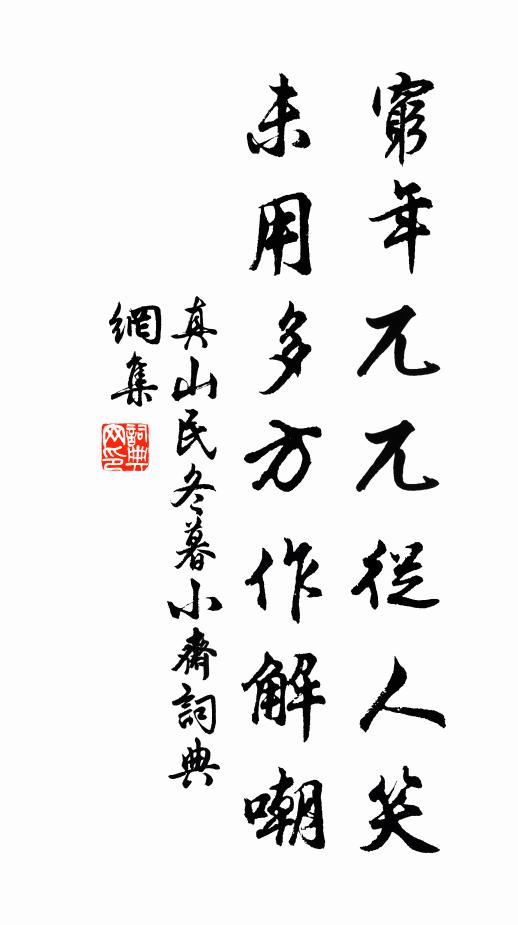 窮年兀兀從人笑
未用多方作解嘲
真山民冬暮小齋詞典
網集
詞典
网印